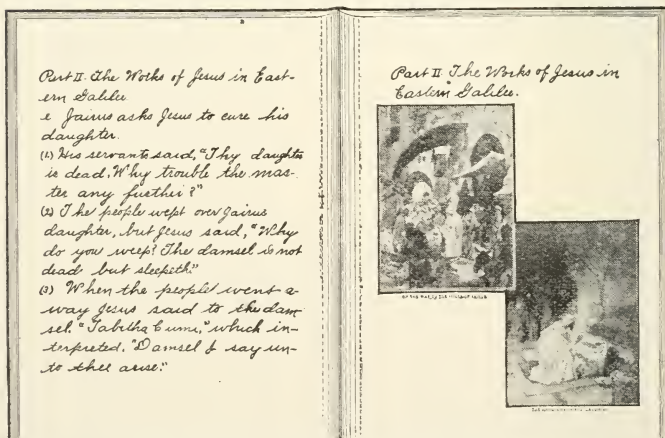 Part II. The Works of Jesus in East-
ern Galilee
e Jairus asks Jesus to cure his
daughter.
(1) His servants said, "Thy daughter
is dead. Why trouble the mas-
ter any further?"
(2) The people wept over Jairus
daughter, but Jesus said, "Why
do you weep? The damsel is not
dead but sleepeth."
(3) When the people went a-
way Jesus said to the dam
sel, "Tabitha Cumi," which in-
terpreted, "Damsel I say un-
to thee arise."
Part II The Works of Jesus in
Eastern Galilee.